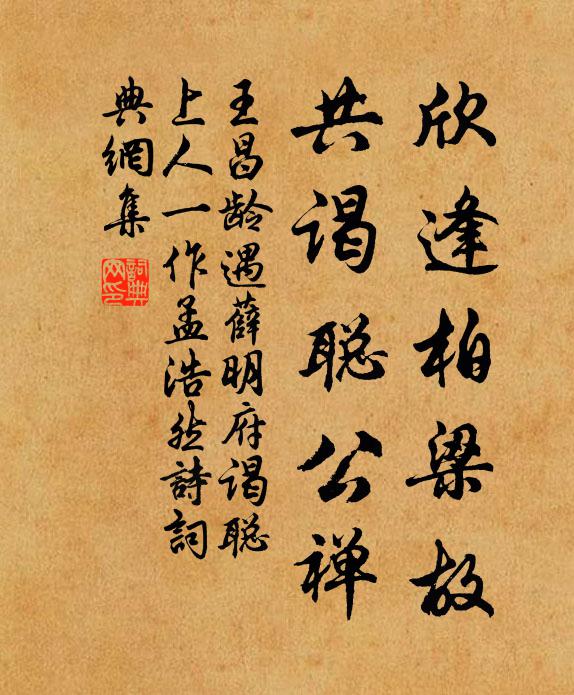 欣逢柏梁故
共谒聪公禅
王昌龄遇薛明府谒聪
上人一作孟浩然詩詞
典網集
詞典
网印